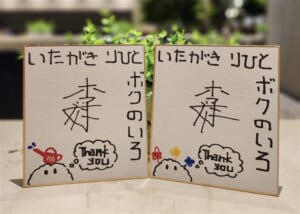 いたがき りひと
ボクのいろ
Thank
you
いたがき りひと
ボクのいろ
Thank
you